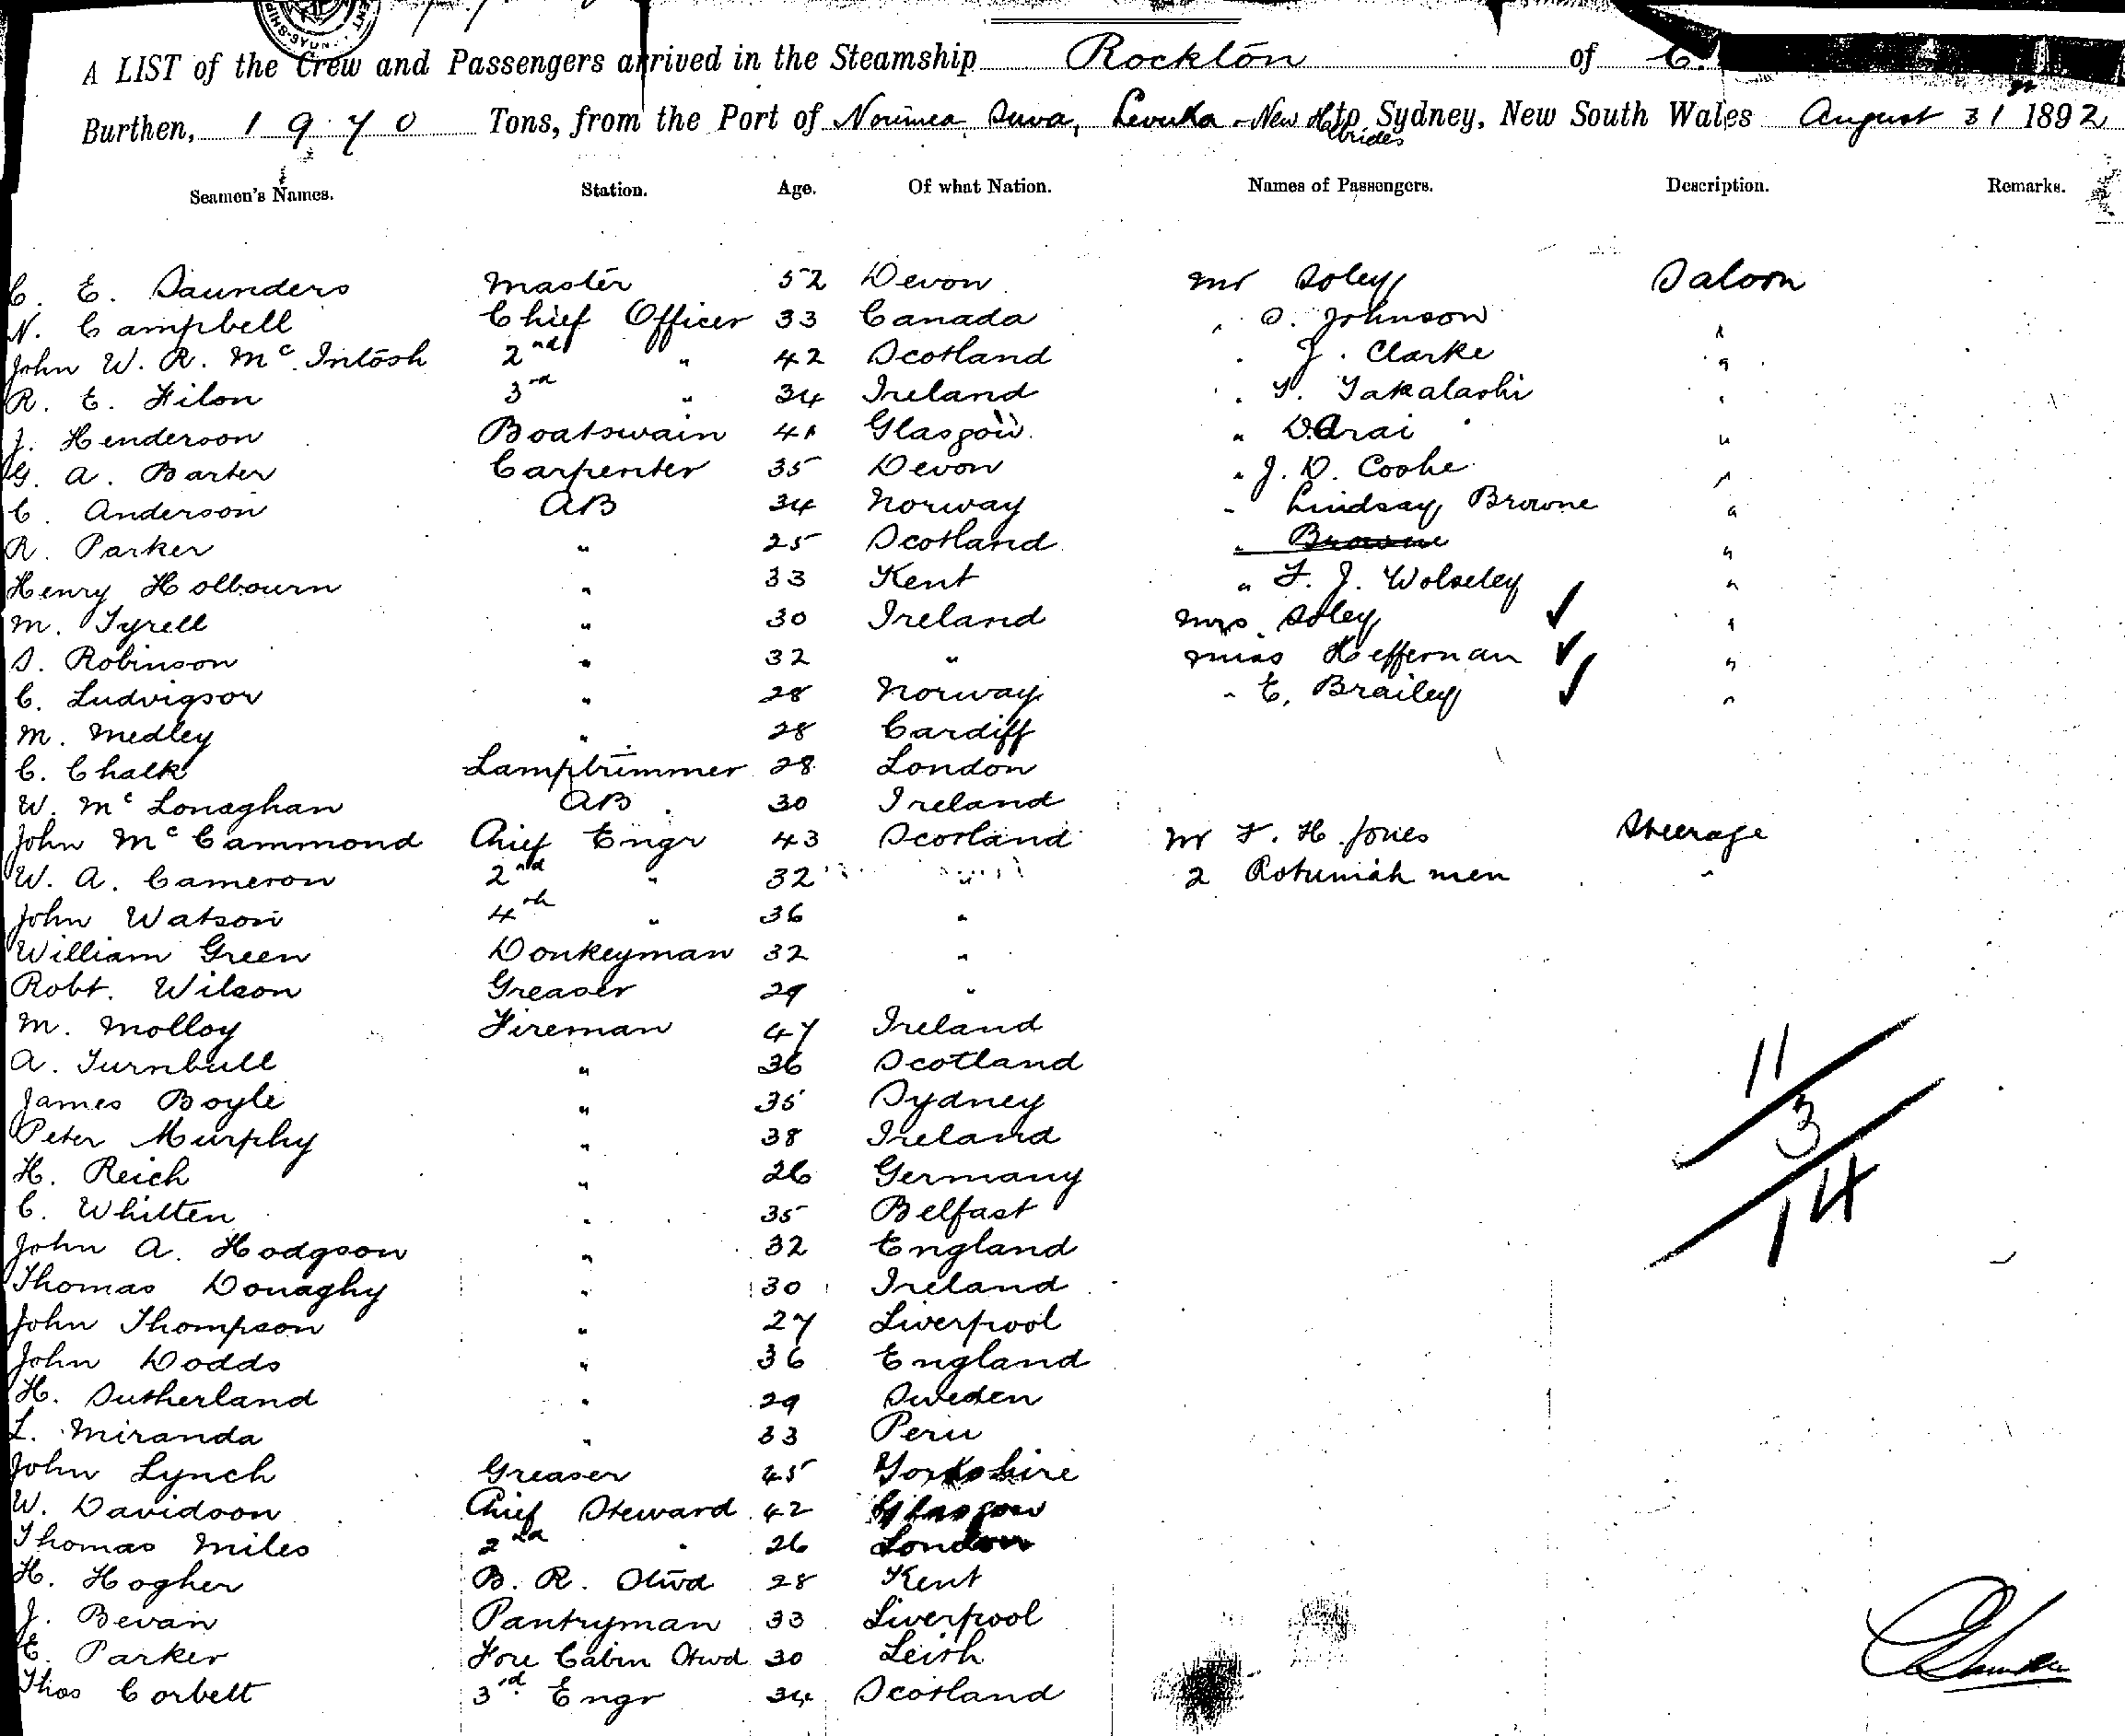 A LIST of the Crew and Passengers arrived in the Steamship Rockton of
Burthen, 1970 Tons, from the Port of Noumea Suva, Levuka - New Hebrides to Sydney, New South Wales August 31 1892
Seamen's Names. Station. Age. Of what Nation. Names of Passengers. Description. Remarks.
C. E. Saunders Master 52 Devon Mr Soley Saloon
N. Campbell Chief Officer 33 Canada " S. Johnson "
John W. R. McIntosh 2nd " 42 Scotland " J. Clarke "
R. E. Filon 3rd " 34 Ireland " T. Takalashi "
J. Henderson Boatswain 41 Glasgow " D. Arai "
G. A. Barter Carpenter 35 Devon " J. D. Cooke "
C. Anderson AB 34 Norway " Lindsay Browne "
R. Parker " 25 Scotland " Browne "
Henry Holbourn " 33 Kent " F. J. Wolseley "
M. Tyrell " 30 Ireland Mrs Soley ✓ "
S. Robinson " 32 " Miss Heffernan ✓ "
C. Ludvigsor " 28 Norway " E. Brailey ✓ "
M. Medley " 28 Cardiff
C. Chalk Lamptrimmer 28 London
W. McLonaghan AB 30 Ireland
John McCammond Chief Engr 43 Scotland Mr F. H. Jones Steerage
W. A. Cameron 2nd " 32 " 2 Rotumah men "
John Watson 4th " 36 "
William Green Donkeyman 32 "
Robt. Wilson Greaser 29 "
M. Molloy Fireman 47 Ireland
A. Turnbull " 36 Scotland
James Boyle " 35 Sydney
Peter Murphy " 38 Ireland
H. Reich " 26 Germany
C. Whitten " 35 Belfast
John A. Hodgson " 32 England
Thomas Donaghy " 30 Ireland
John Thompson " 27 Liverpool
John Dodds " 36 England
H. Sutherland " 29 Sweden
L. Miranda " 33 Peru
John Lynch Greaser 45 Yorkshire
W. Davidson Chief Steward 42 Glasgow
Thomas Miles 2nd " 26 London
H. Hogher B. R. Stwd 28 Kent
J. Bevan Pantryman 33 Liverpool
E. Parker Fore Cabin Stwd 30 Leith
Thos Corbett 3rd Engr 34 Scotland
11
3
14